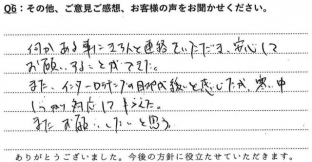 Q6：その他、ご意見ご感想、お客様の声をお聞かせください。
何かある事にきちんと連絡をいただき、安心して
お願いすることができた。
また、インターロッキングの目地が狭いと感じたが、寒い中
しっかり対応して下さった。
またお願いしたいと思う。
ありがとうございました。今後の方針に役立たせていただきます。